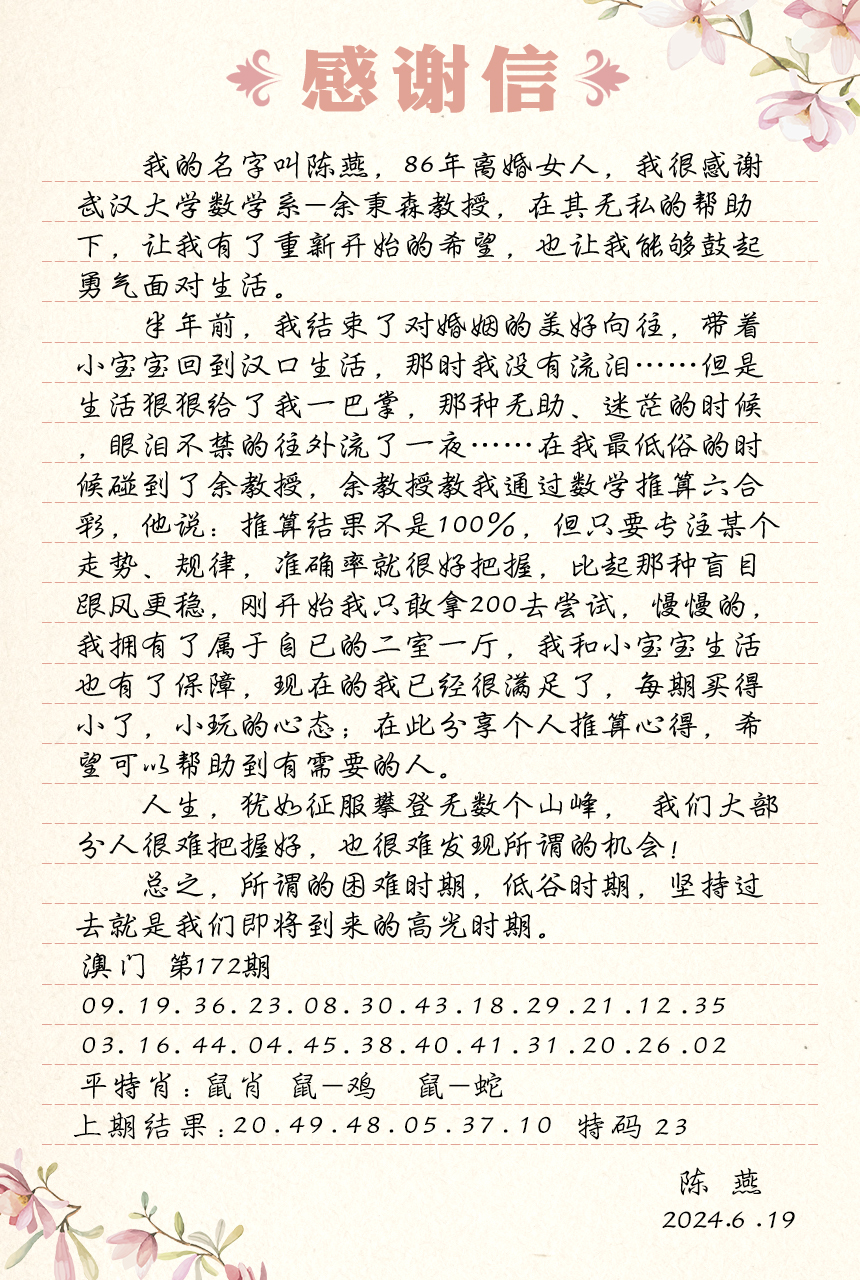 感谢信
我的名字叫陈燕，86年离婚女人，我很感谢
武汉大学数学系—余秉森教授，在其无私的帮助
下，让我有了重新开始的希望，也让我能够鼓起
勇气面对生活。
半年前，我结束了对婚姻的美好向往，带着
小宝宝回到汉口生活，那时我没有流泪……但是
生活狠狠给了我一巴掌，那种无助、迷茫的时候
，眼泪不禁的往外流了一夜……在我最低俗的时
候碰到了余教授，余教授教我通过数学推算六合
彩，他说：推算结果不是100%，但只要专注某个
走势、规律，准确率就很好把握，比起那种盲目
跟风更稳，刚开始我只敢拿200去尝试，慢慢的，
我拥有了属于自已的二室一厅，我和小宝宝生活
也有了保障，现在的我已经很满足了，每期买得
小了，小玩的心态；在此分享个人推算心得，希
望可以帮助到有需要的人。
人生，犹如征服攀登无数个山峰， 我们大部
分人很难把握好，也很难发现所谓的机会！
总之，所谓的困难时期，低谷时期，坚持过
去就是我们即将到来的高光时期。
澳门 第172期
09.19.36.23.08.30.43.18.29.21.12.35
03.16.44.04.45.38.40.41.31.20.26.02
平特肖：鼠肖 鼠—鸡 鼠—蛇
上期结果：20.49.48.05.37.10 特码 23
陈 燕
2024.6 .19